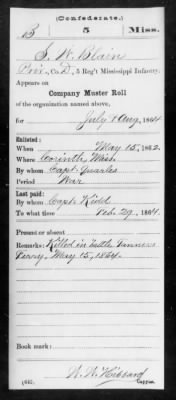 (Confederate.)
B 5 Miss.
S. W. Blain
Pvt., Co. D, 5 Reg't Mississippi Infantry.
Appears on
Company Muster Roll
of the organization named above,
for July & Aug, 1864
Enlisted:
When May 15, 1862.
Where Corinth, Miss.
By whom Capt. Quarles
Period War
Last paid:
By whom Capt. Kidd
To what time Feb. 29, 1864.
Present or absent
Remarks: Killed in battle
Ferry, May 15, 1864.
Book mark:
(642) W. W. Hibbard
Copyist.